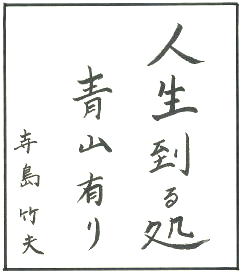 人生到る処
青山有り
寺島竹夫